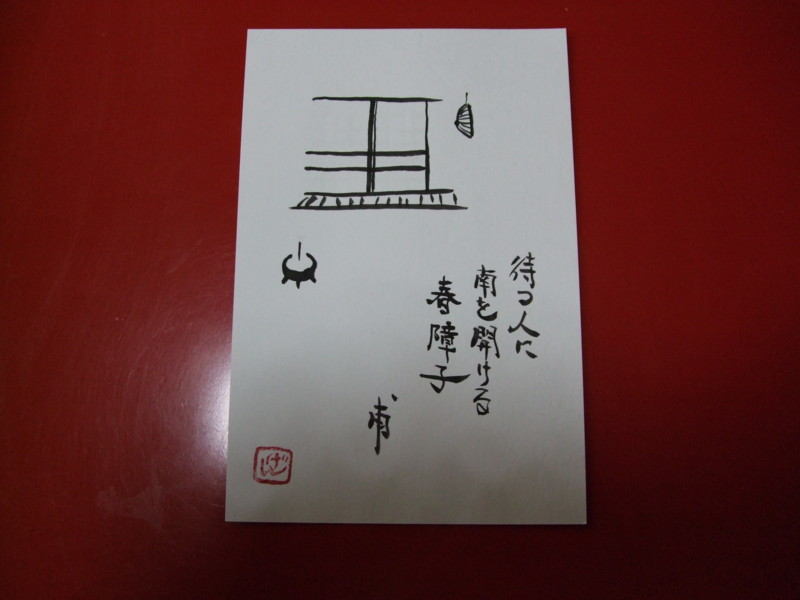 待つ人に
南を開ける
春障子
甫
げじ